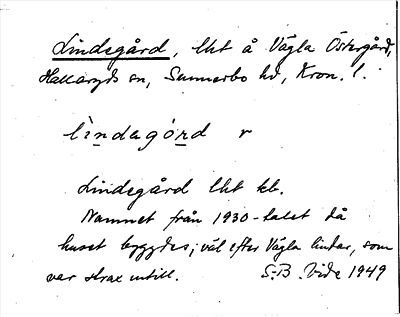 Lindegård, lht å Vägla Östergård,
Hallaryds sn, Sunnerbo hd, Kron. l.
lìndagó̱rd r
Lindegård lht kb.
Namnet från 1930-talet då
huset byggdes; väl efter Vägla lindar, som
var strax intill. S-B. Vide 1949